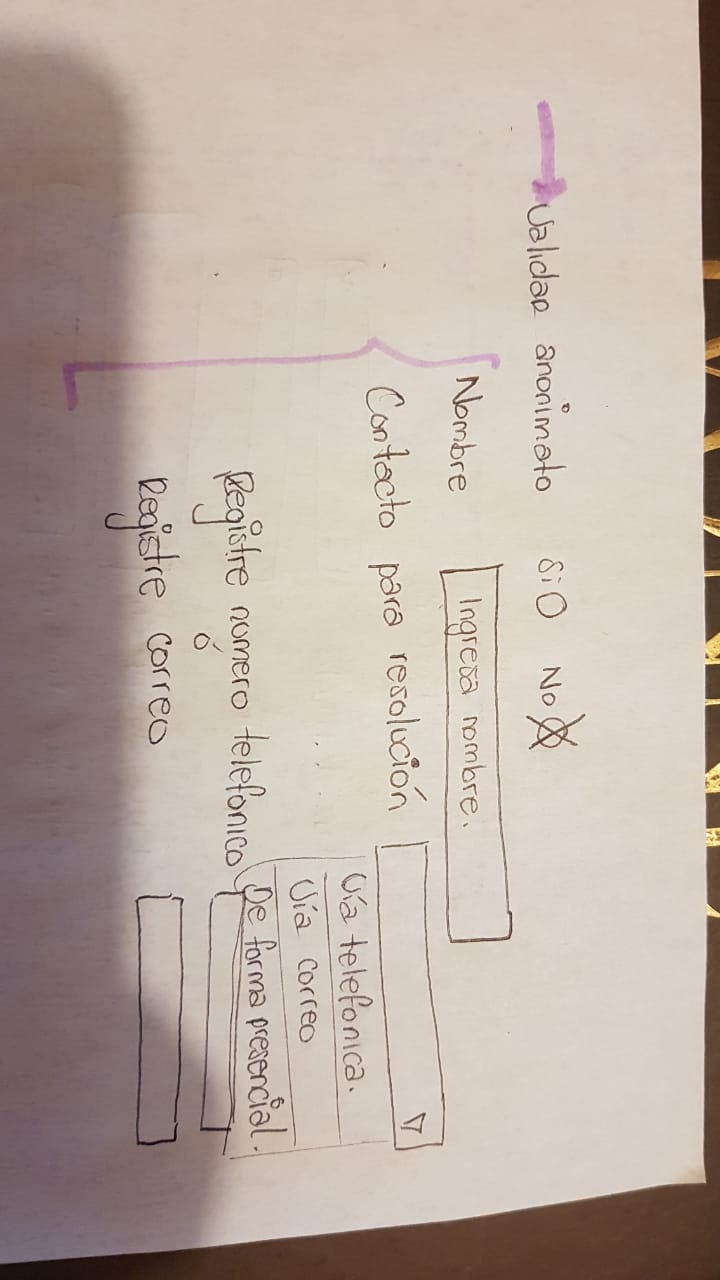 Validar anonimato Si No
Nombre Ingresa nombre.
Contacto para resolución
Vía telefonica.
Vía correo
De forma presencial.
Registre número telefonico
ó
Registre correo